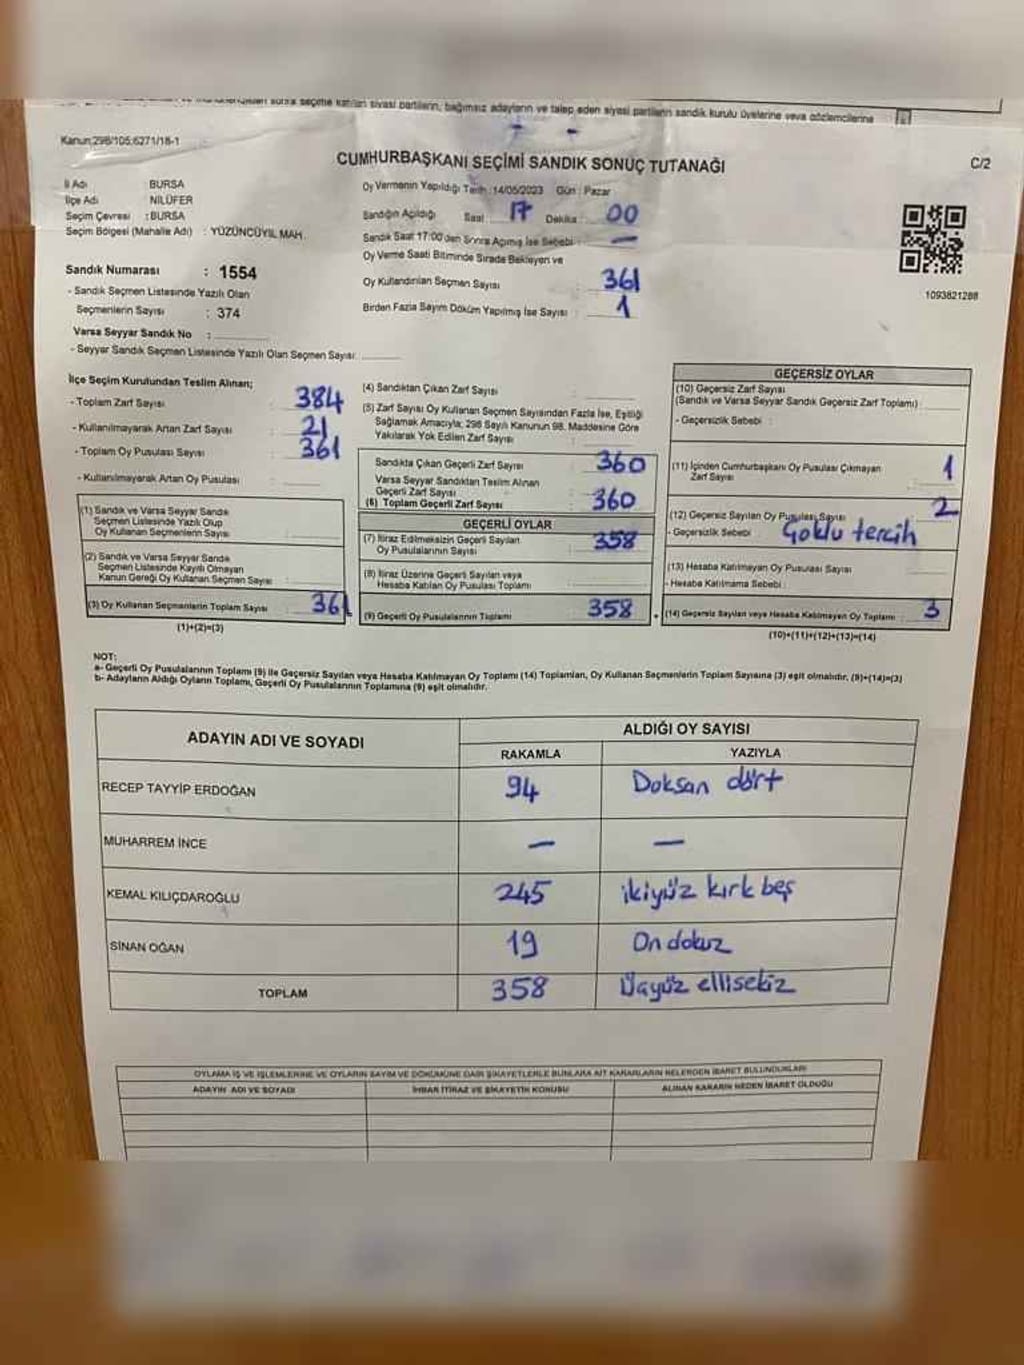 sonra seçime katılan siyasi partilerin, bağımsız adayların ve talep eden siyasi partilerin sandık kurulu üyelerine veya gözlemcilerine
Kanun:298/105;6271/18-1
CUMHURBAŞKANI SEÇİMİ SANDIK SONUÇ TUTANAĞI
C/2
İl Adı BURSA
İlçe Adı NİLÜFER
Seçim Çevresi : BURSA
Seçim Bölgesi (Mahalle Adı) : YÜZÜNCÜYIL MAH.
Sandık Numarası : 1554
- Sandık Seçmen Listesinde Yazılı Olan
Seçmenlerin Sayısı : 374
Varsa Seyyar Sandık No :
- Seyyar Sandık Seçmen Listesinde Yazılı Olan Seçmen Sayısı
Oy Vermenin Yapıldığı Tarih :14/05/2023 Gün : Pazar
Sandığın Açıldığı Saat : 17 Dakika : 00
Sandık Saat 17:00'den Sonra Açılmış İse Sebebi : —
Oy Verme Saati Bitiminde Sırada Bekleyen ve
Oy Kullandırılan Seçmen Sayısı : 361
Birden Fazla Sayım Döküm Yapılmış İse Sayısı : 1
1093821288
İlçe Seçim Kurulundan Teslim Alınan;
- Toplam Zarf Sayısı : 384
- Kullanılmayarak Artan Zarf Sayısı : 21
- Toplam Oy Pusulası Sayısı : 361
- Kullanılmayarak Artan Oy Pusulası :
(1) Sandık ve Varsa Seyyar Sandık
Seçmen Listesinde Yazılı Olup
Oy Kullanan Seçmenlerin Sayısı :
(2) Sandık ve Varsa Seyyar Sandık
Seçmen Listesinde Kayıtlı Olmayan
Kanun Gereği Oy Kullanan Seçmen Sayısı :
(3) Oy Kullanan Seçmenlerin Toplam Sayısı : 361
(1)+(2)=(3)
(4) Sandıktan Çıkan Zarf Sayısı :
(5) Zarf Sayısı Oy Kullanan Seçmen Sayısından Fazla İse, Eşitliği
Sağlamak Amacıyla; 298 Sayılı Kanunun 98. Maddesine Göre
Yakılarak Yok Edilen Zarf Sayısı :
Sandıkta Çıkan Geçerli Zarf Sayısı : 360
Varsa Seyyar Sandıktan Teslim Alınan
Geçerli Zarf Sayısı :
(6) Toplam Geçerli Zarf Sayısı : 360
GEÇERLİ OYLAR
(7) İtiraz Edilmeksizin Geçerli Sayılan
Oy Pusulalarının Sayısı : 358
(8) İtiraz Üzerine Geçerli Sayılan veya
Hesaba Katılan Oy Pusulası Toplamı :
(9) Geçerli Oy Pusulalarının Toplamı : 358
GEÇERSİZ OYLAR
(10) Geçersiz Zarf Sayısı
(Sandık ve Varsa Seyyar Sandık Geçersiz Zarf Toplamı) :
- Geçersizlik Sebebi :
(11) İçinden Cumhurbaşkanı Oy Pusulası Çıkmayan
Zarf Sayısı : 1
(12) Geçersiz Sayılan Oy Pusulası Sayısı : 2
- Geçersizlik Sebebi : Çoklu tercih
(13) Hesaba Katılmayan Oy Pusulası Sayısı :
- Hesaba Katılmama Sebebi :
(14) Geçersiz Sayılan veya Hesaba Katılmayan Oy Toplamı : 3
(10)+(11)+(12)+(13)=(14)
NOT:
a- Geçerli Oy Pusulalarının Toplamı (9) ile Geçersiz Sayılan veya Hesaba Katılmayan Oy Toplamı (14) Toplamları, Oy Kullanan Seçmenlerin Toplam Sayısına (3) eşit olmalıdır. (9)+(14)=(3)
b- Adayların Aldığı Oyların Toplamı, Geçerli Oy Pusulalarının Toplamına (9) eşit olmalıdır.
ADAYIN ADI VE SOYADI ALDIĞI OY SAYISI
RAKAMLA YAZIYLA
RECEP TAYYİP ERDOĞAN 94 Doksan dört
MUHARREM İNCE — —
KEMAL KILIÇDAROĞLU 245 ikiyüz kırk beş
SİNAN OĞAN 19 On dokuz
TOPLAM 358 Üçyüz ellisekiz
OYLAMA İŞ VE İŞLEMLERİNE VE OYLARIN SAYIM VE DÖKÜMÜNE DAİR ŞİKAYETLERLE BUNLARA AİT KARARLARIN NELERDEN İBARET BULUNDUKLARI
ADAYIN ADI VE SOYADI İHBAR İTİRAZ VE ŞİKAYETİN KONUSU ALINAN KARARIN NEDEN İBARET OLDUĞU